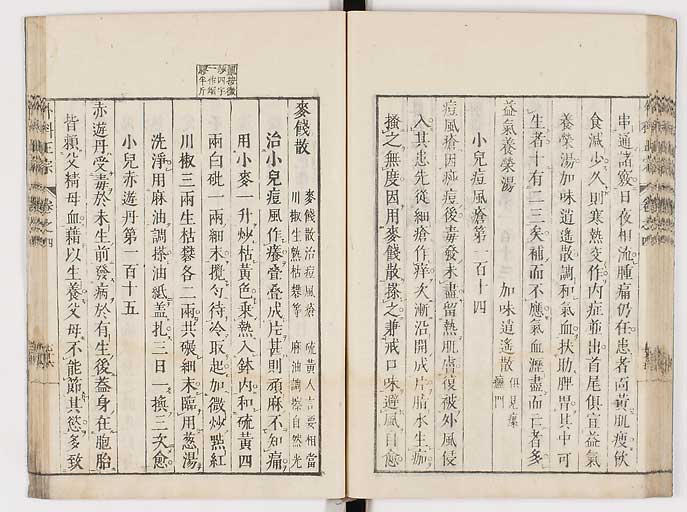 串通諸竅日夜相流腫痛仍在患者面黃肌瘦飲
食減少久則寒熱交作內症並出首尾俱宜益氣
養榮湯加味逍遙散調和氣血扶助脾胃其中可
生者十有二三矣補而不應氣血瀝盡而亡者多
益氣養榮湯 加味逍遙散 俱見瘰癧門
小兒痘風瘡第一百十四
痘風瘡因痧痘後毒發未盡留熱肌膚復被外風侵
入其患先從細瘡作痒次漸沿開成片脂水生痂
搔之無度因用麥餞散搽之兼戒口味避風自愈
麥餞散
麥餞散治痘風瘡 硫黃人言要相當
川椒生熟枯礬等 麻油調搽自然光
治小兒痘風作癢疊疊成片甚則頑麻不知痛
用小麥一升炒枯黃色乘熱入鉢內和硫黃四
兩白砒一兩細末攪勻待冷取起加微炒黑紅
川椒三兩生枯礬各二兩共碾細末臨用葱湯
洗淨用麻油調搽油紙蓋扎三日一換三次愈
小兒赤遊丹第一百十五
赤遊丹受毒於未生前發病於有生後葢身在胞胎
皆賴父精母血藉以生養父母不能節其慾多致
外科正宗 卷之四